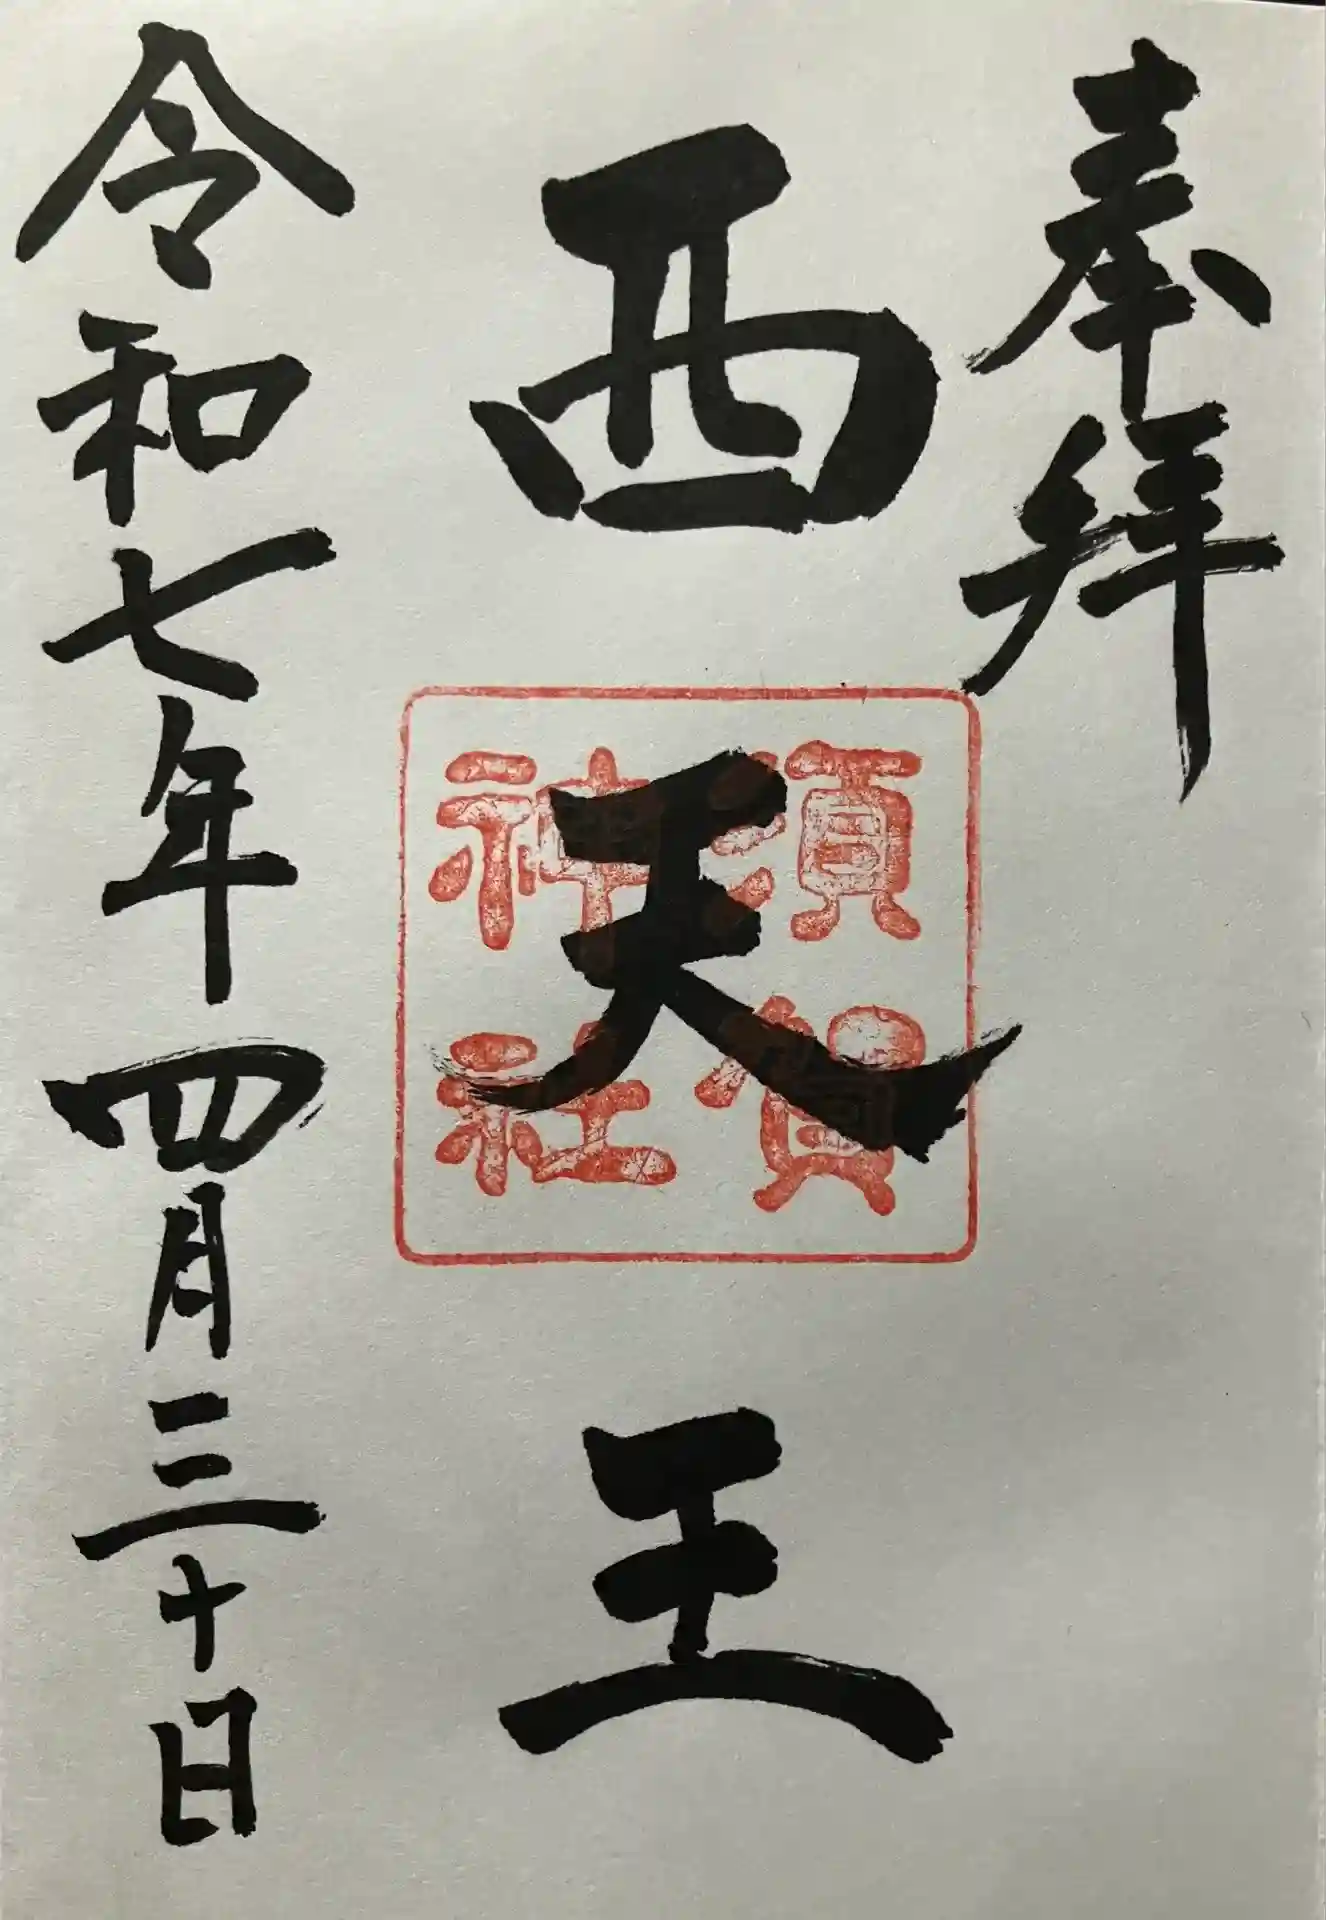 奉拝
西天王
須賀
神社
令和七年四月三十日